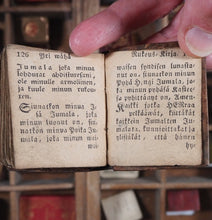 126 Pei wähä
Jumala joka minua
lohdutat ahdistuxesani,
ole minulle armolinen,
ja kuule minun rukou-
xen.
Siunatkon minua I-
sä Jumala, joka
minun luonut on, siu-
natkon minua Poika Ju-
mala, joka minun ve-
Rukous-Kirja.
waisen syndisen lunasta-
nut on, siunatkon minua
Pyhä Hengi Jumala, jo-
ka minun pyhäsä Kastesa
ja pyhittänyt on, Amen.
Kaikki jotka HERraa
pelkäiwät, kiittäkät
kaikkein Jumalten Ju-
malata, kunnioittakat ja
ylistäkät, että hänen
hy-